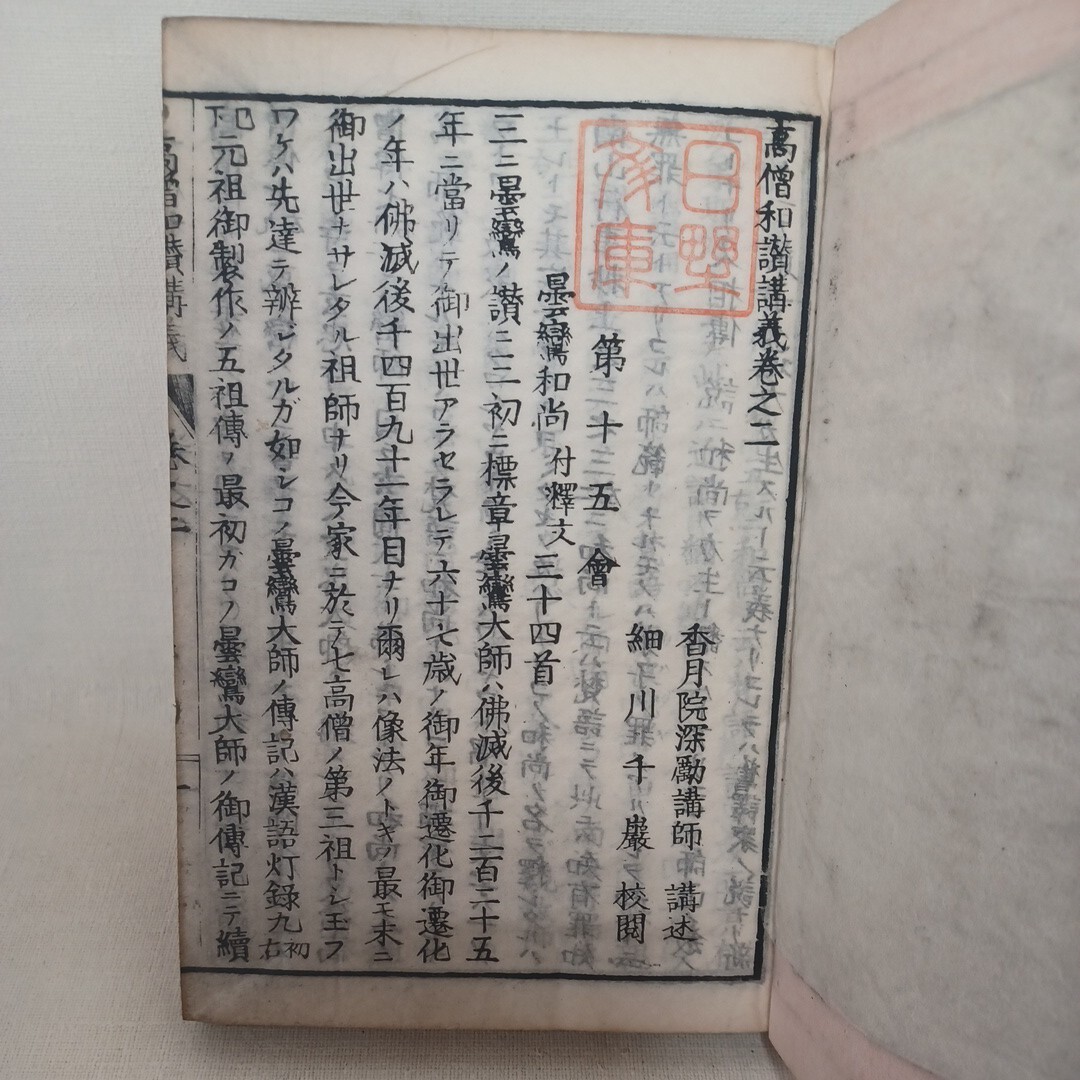 高僧和讃講義卷之二
日野文庫
香月院深勵講師 講述
細川千巖 校閱
第十五會
曇鸞和尚 付釋文 三十四首
三ニ曇鸞ノ讃ニ二初ニ標章曇鸞大師ハ佛滅後千四百二十五
年ニ當リテ御出世アラセラレテ六十七歳ノ御年御遷化御遷化
ノ年ハ佛滅後千四百九十一年目ナリ爾レハ像法ノトキノ最モ末ニ
御出世ナサレタル祖師ナリ今家ニ於テ七高僧ノ第三祖トシ玉フ
ワケハ先達テ辨シタルガ如シコノ曇鸞大師ノ傳記ハ漢語灯錄九初右
元祖御製作ノ五祖傳ノ最初ガコノ曇鸞大師ノ御傳記ニテ續
高僧和讃講義 卷之二 一